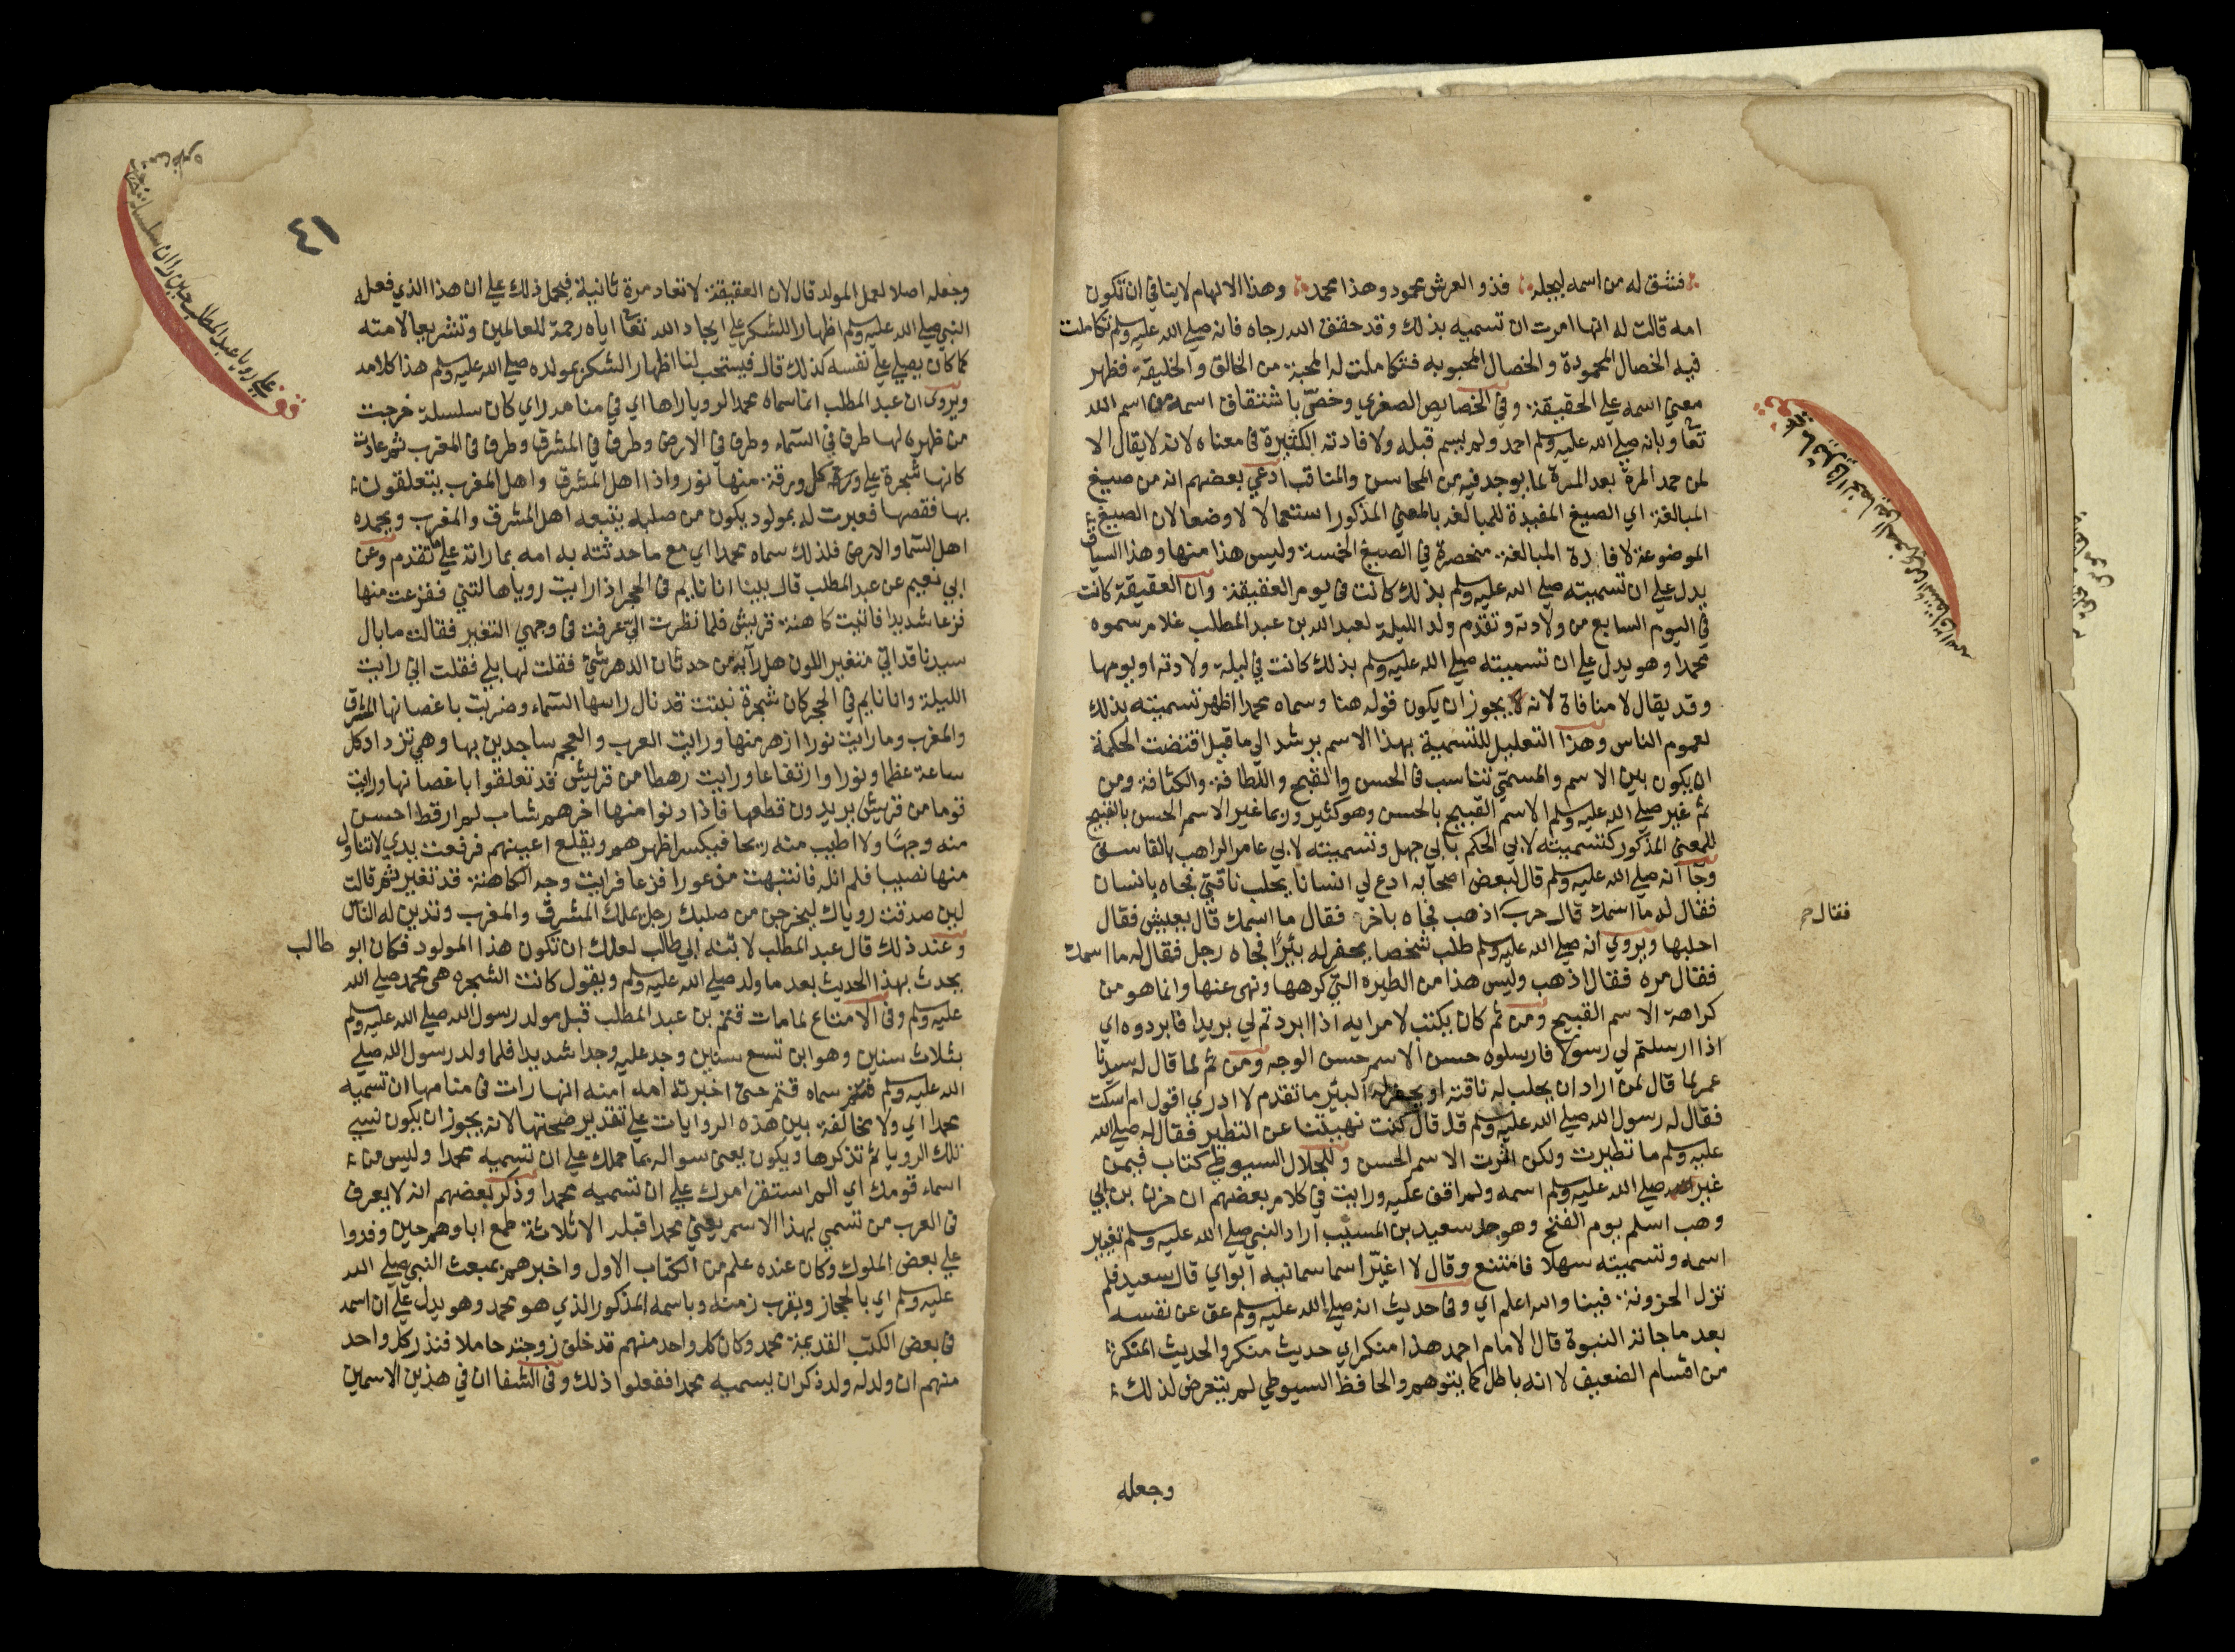 فشق له من اسمه ليجله فذو العرش محمود وهذا محمد وهذا الالهام لاينافي ان تكون
امه قالت له انها امرت ان تسميه بذلك وقد حقق الله رجاه فانه صلي الله عليه وسلم تكاملت
فيه الخصال المحمودة والخصال المحبوبه فتكاملت له المحبة من الخالق والخليقة فظهر
معني اسمه علي الحقيقة وفي الخصايص الصغري وخصّ باشتقاق اسمه من اسم الله
تعا وبانه صلي الله عليه وسلم احمد ولم يسم قبله ولافادته الكثيرة في معناه لانه لايقال الا
لمن حمد المرة بعد المرة لما يوجد فيه من المحاسن والمناقب ادعي بعضهم انه من صيغ
المبالغة اي الصيغ المفيدة للمبالغه بالمعني المذكور استعمالا لا وضعا لان الصيغ
الموضوعة لافادة المبالغة منحصرة في الصيغ الخمسة وليس هذا منها وهذا السياق
يدل علي ان تسميته صلي الله عليه وسلم بذلك كانت في يوم العقيقة وان العقيقة كانت
في اليوم السابع من ولادته وتقدم ولد الليلة لعبد الله بن عبد المطلب غلام سموه
محمدا وهو يدل علي ان تسميته صلي الله عليه وسلم بذلك كانت في ليلة ولادته او يومها
وقد يقال لامنافاة لانه يجوز ان يكون قوله هنا وسماه محمدا اظهر تسميته بذلك
لعموم الناس وهذا التعليل للتسمية بهذا الاسم يرشد الي ما قيل اقتضت الحكمة
ان يكون بين الاسم والمسمّي تناسب في الحسن والقبح واللطافة والكثافة ومن
ثم غير صلي الله عليه وسلم الاسم القبيح بالحسن وهو كثير وربما غير الاسم الحسن بالقبيح
للمعني المذكور كتسميته لابي الحكم بابي جهل وتسميته لابي عامر الراهب بالفاسق
وجا انه صلي الله عليه وسلم قال لبعض اصحابه ادع لي انسانا يحلب ناقتي فجاه بانسان
فقال له ما اسمك قال حرب اذهب فجاه باخر فقال ما اسمك قال يعيش فقال
فقال حر
احلبها ويروي انه صلي الله عليه وسلم طلب شخصا يحفر له بئرا فجاه رجل فقال له ما اسمك
فقال مره فقال اذهب وليس هذا من الطيره التي كرهها ونهي عنها وانما هو من
كراهة الاسم القبيح ومن ثم كان يكتب لامرايه اذا ابردتم لي بريدا فابردوه اي
اذا ارسلتم لي رسولا فارسلوه حسن الاسم حسن الوجه ومن ثم لما قال له سيدنا
عمر لما قال لمن اراد ان يحلب له ناقته او يحفر له البئر ما تقدم لا ادري اقول ام اسكت
فقال له رسول الله صلي الله عليه وسلم قل قال كنت نهيتنا عن التطير فقال له صلي الله
عليه وسلم ما تطيرت ولكن اثرت الاسم الحسن وللجلال السيوطي كتاب فيمن
غير صلي الله عليه وسلم اسمه ولم اقف عليه ورايت في كلام بعضهم ان حزن بن ابي
وهب اسلم يوم الفتح وهو جد سعيد بن المسيب اراد النبي صلي الله عليه وسلم تغيير
اسمه وتسميته سهلا فامتنع وقال لا اغيّر اسما سمانيه ابواي قال سعيد فلم
تزل الحزونة فينا والله اعلم اي وفي حديث انه صلي الله عليه وسلم عق عن نفسه
بعد ما جاته النبوة قال الامام احمد هذا منكر اي حديث منكر والحديث المنكر
من اقسام الضعيف لا انه باطل كما يتوهم والحافظ السيوطي لم يتعرض لذلك
وجعله
٤١
وجعله اصلا لعمل المولد قال لان العقيقة لاتعاد مرة ثانية فيحمل ذلك علي ان هذا الذي فعله
النبي صلي الله عليه وسلم اظهارا للشكر علي ايجاد الله تعا اياه رحمة للعالمين وتشريعا لامته
كما كان يصلي علي نفسه كذلك قال فيستحب لنا اظهار الشكر بمولده صلي الله عليه وسلم هذا كلامه
ويروي ان عبد المطلب انما سماه محمدا لرويا راها اي في منامه راي كان سلسلة خرجت
من ظهره لها طرف في السماء وطرف في الارض وطرف في المشرق وطرف في المغرب ثم عادت
كانها شجرة علي كل ورقة منها نور واذا اهل المشرق واهل المغرب يتعلقون
بها فقصها فعبرت له بمولود يكون من صلبه يتبعه اهل المشرق والمغرب ويحمده
اهل السما والارض فلذلك سماه محمدا اي مع ما حدثته به امه بما راته علي ما تقدم وعن
ابي نعيم عن عبد المطلب قال بينا انا نايم في الحجر اذ رايت رويا هالتني ففزعت منها
فزعا شديدا فاتيت كاهنة قريش فلما نظرت اليّ عرفت في وجهي التغير فقالت ما بال
سيدنا قد اتي متغير اللون هل رابه من حدثان الدهر شئ فقلت لها بلي فقلت اني رايت
الليلة وانا نايم في الحجر كان شجرة نبتت قد نال راسها السماء وضربت باغصانها المشرق
والمغرب وما رايت نورا ازهر منها ورايت العرب والعجم ساجدين بها وهي تزداد كل
ساعة عظما ونورا وارتفاعا ورايت رهطا من قريش قد تعلقوا باغصانها ورايت
قوما من قريش يريدون قطعها فاذا دنوا منها اخرهم شاب لم ار قط احسن
منه وجها ولا اطيب منه ريحا فيكسر اظهرهم ويقلع اعينهم فرفعت يدي لاتناول
منها نصيبا فلم انله فانتبهت مذعورا فزعا فرايت وجه الكاهنة قد تغير ثم قالت
لين صدقت روياك ليخرجن من صلبك رجل يملك المشرق والمغرب وتدين له الناس
وعند ذلك قال عبد المطلب لابنه ابي طالب لعلك ان تكون هذا المولود فكان ابو طالب
يحدث بهذا الحديث بعد ما ولد صلي الله عليه وسلم ويقول كانت الشجره هي محمد صلي الله
عليه وسلم وفي الامتاع لما مات قثم بن عبد المطلب قبل مولد رسول الله صلي الله عليه وسلم
بثلاث سنين وهو ابن تسع سنين وجد عليه وجدا شديدا فلما ولد رسول الله صلي
الله عليه وسلم سماه قثم حتي اخبرته امه امنه انها رات في منامها ان تسميه
محمدا اي ولا مخالفة بين هذه الروايات علي تقدير صحتها لانه يجوز ان يكون نسي
تلك الرويا ثم تذكرها ويكون يعني سواله بما حملك علي ان تسميه محمدا وليس من
اسماء قومك اي الم استقر امرك علي ان تسميه محمدا وذكر بعضهم انه لايعرف
في العرب من تسمي بهذا الاسم يعني محمدا قبله الا ثلاثة طمع اباوهم حين وفدوا
علي بعض الملوك وكان عنده علم من الكتاب الاول واخبرهم بمبعث النبي صلي الله
عليه وسلم اي بالحجاز وبقرب زمنه وباسمه المذكور الذي هو محمد وهو يدل علي ان اسمه
في بعض الكتب القديمة محمد وكان كل واحد منهم قد خلف زوجته حاملا فنذر كل واحد
منهم ان ولد له ولد ذكر ان يسميه محمدا ففعلوا ذلك وفي الشفا ان في هذين الاسمين
قف علي رويا عبد المطلب حين راي ان سلسلة خرجت من ظهره